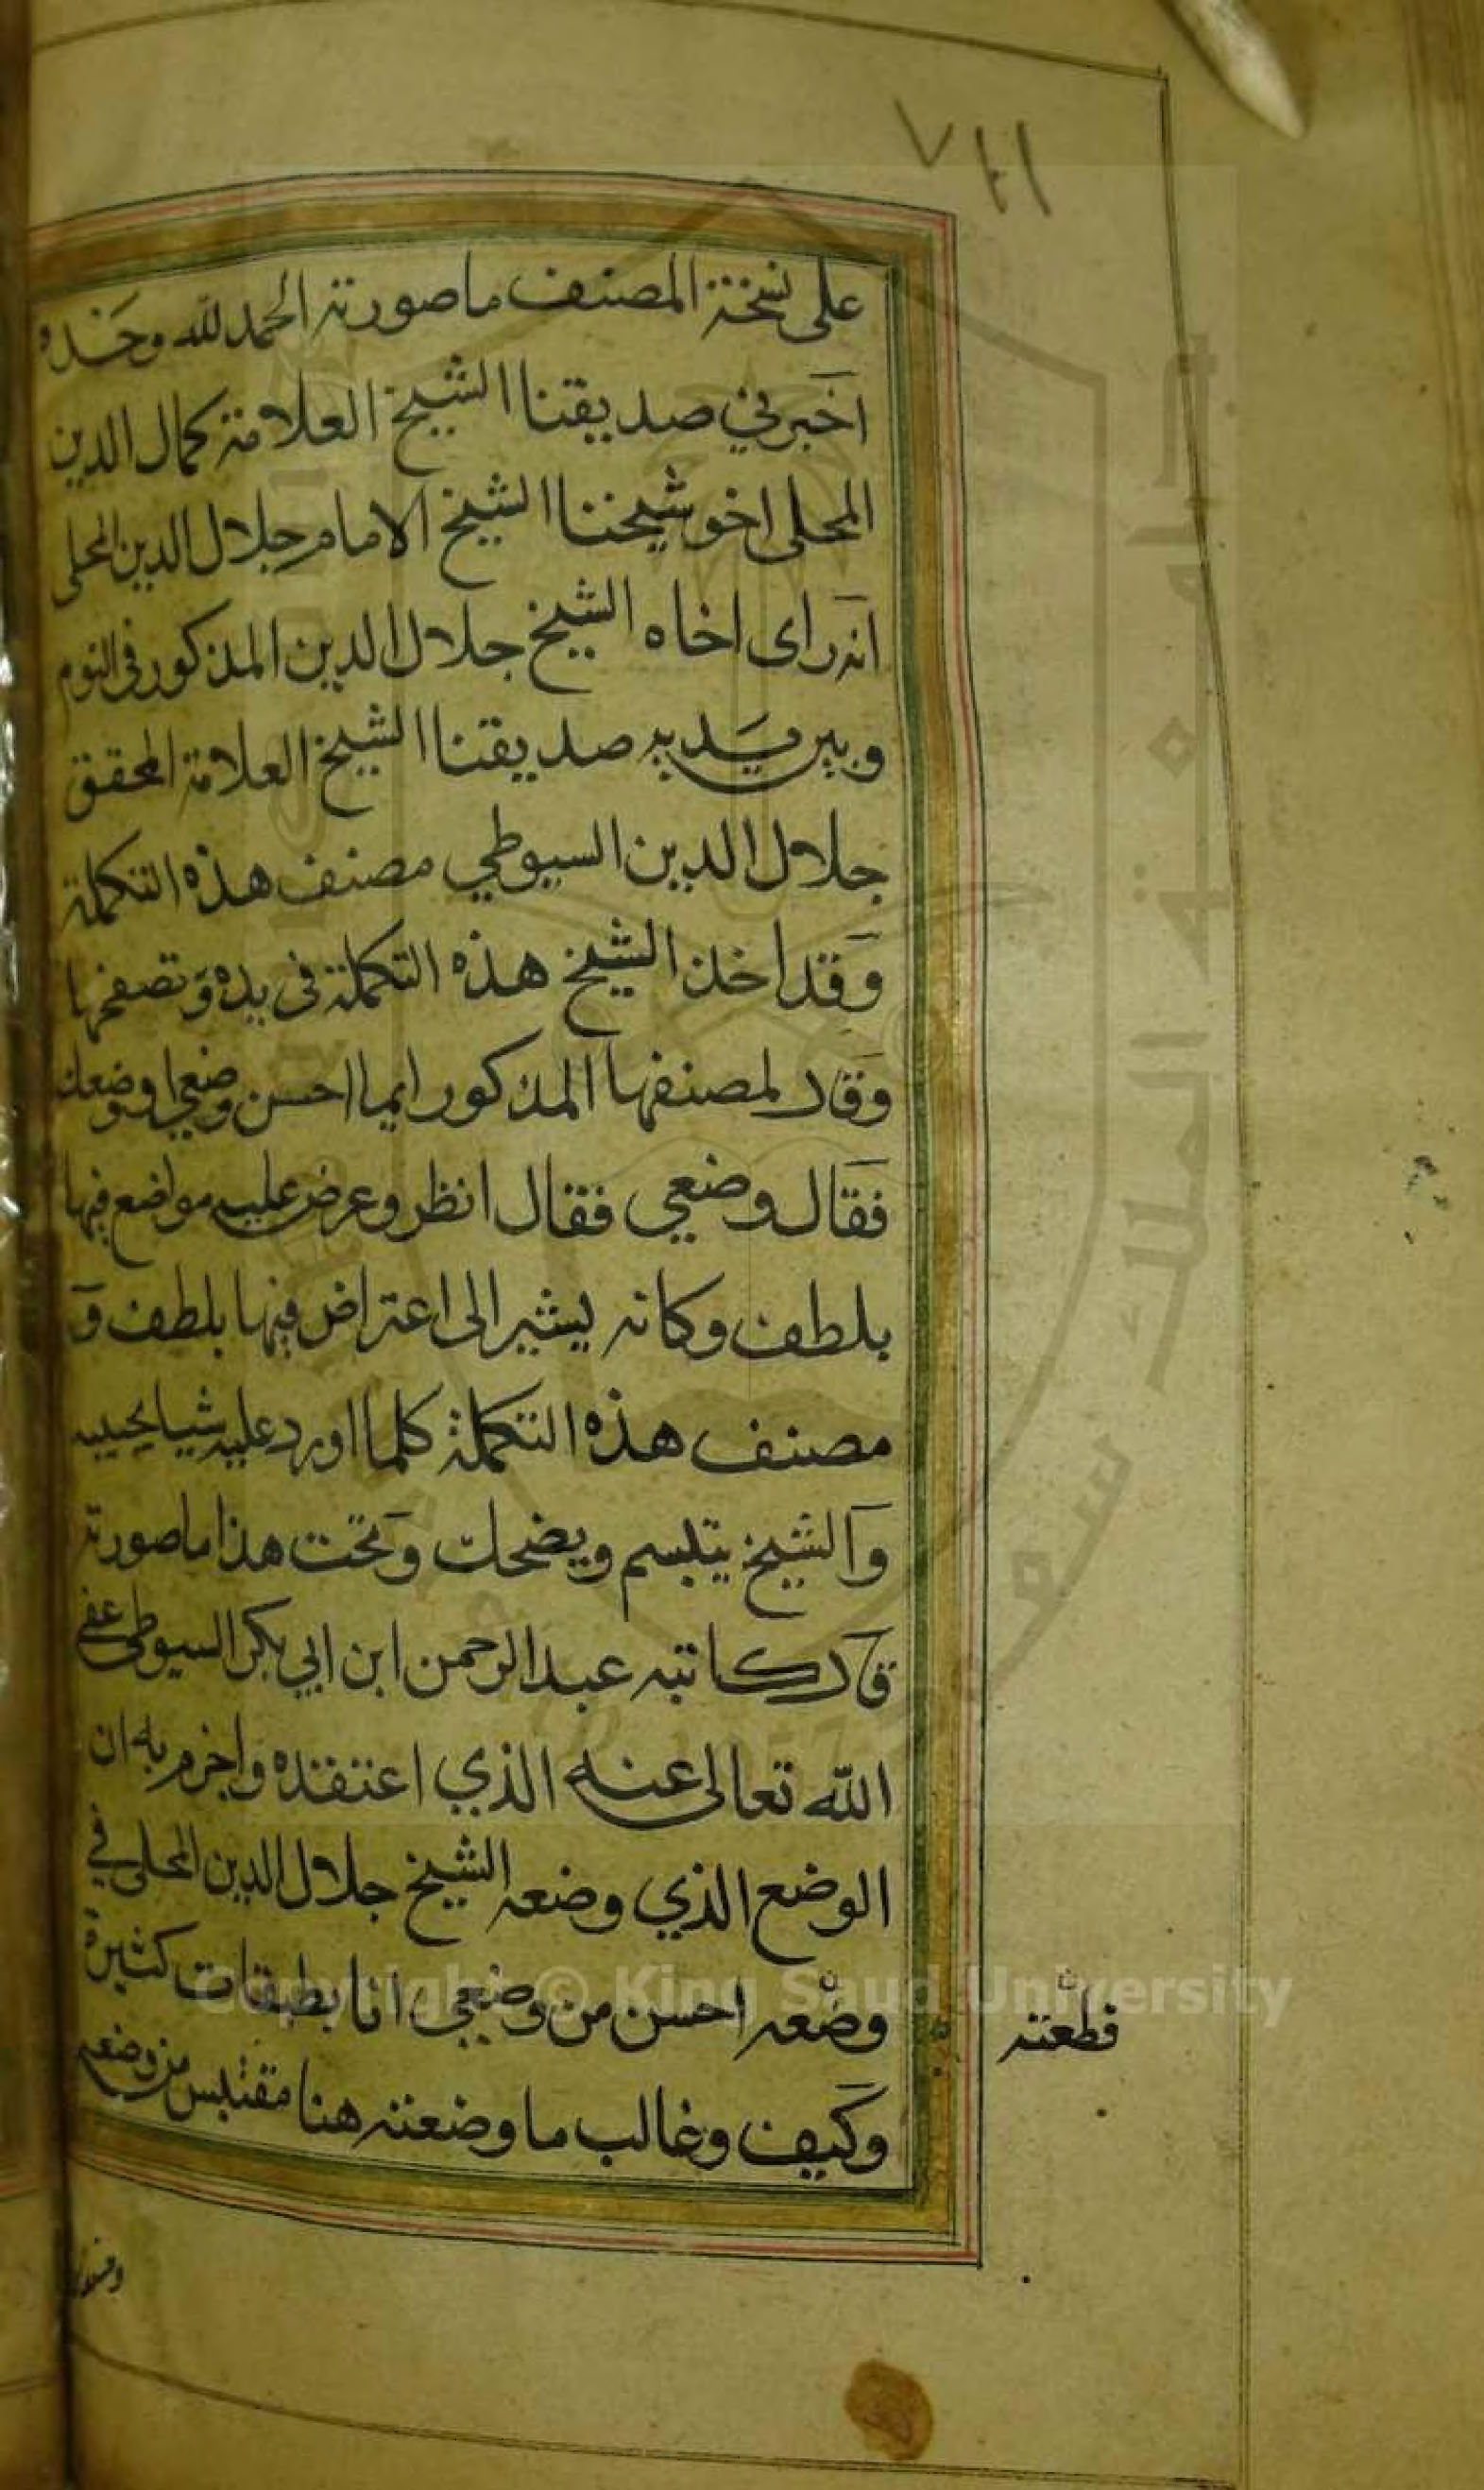 على نسخة المصنف ما صورته الحمد لله وحده
اخبرني صديقنا الشيخ العلامة كمال الدين
المحلى اخو شيخنا الشيخ الامام جلال الدين المحلى
انه راى اخاه الشيخ جلال الدين المذكور فى النوم
وبين يديه صديقنا الشيخ العلامة المحقق
جلال الدين السيوطي مصنف هذه التكملة
وقد اخذ الشيخ هذه التكملة فى يده وتصفحها
وقال لمصنفها المذكور ايما احسن وضعى او وضعك
فقال وضعي فقال انظر وعرض عليه مواضع فيها
بلطف وكانه يشير الى اعتراض فيها بلطف و
مصنف هذه التكملة كلما اورد عليه شيا يجيبه
والشيخ يتبسم ويضحك وتحت هذا ما صورته
قال كاتبه عبد الرحمن ابن ابي بكر السيوطى عفى
الله تعالى عنه الذي اعتقده واجزم به ان
الوضع الذي وضعه الشيخ جلال الدين المحلى في
وضعه احسن من وضعي انا بطبقات كثيرة
قطعته
وكيف وغالب ما وضعته هنا مقتبس من وضعه
Copyright © King Saud University
جامعة الملك سعود
1957